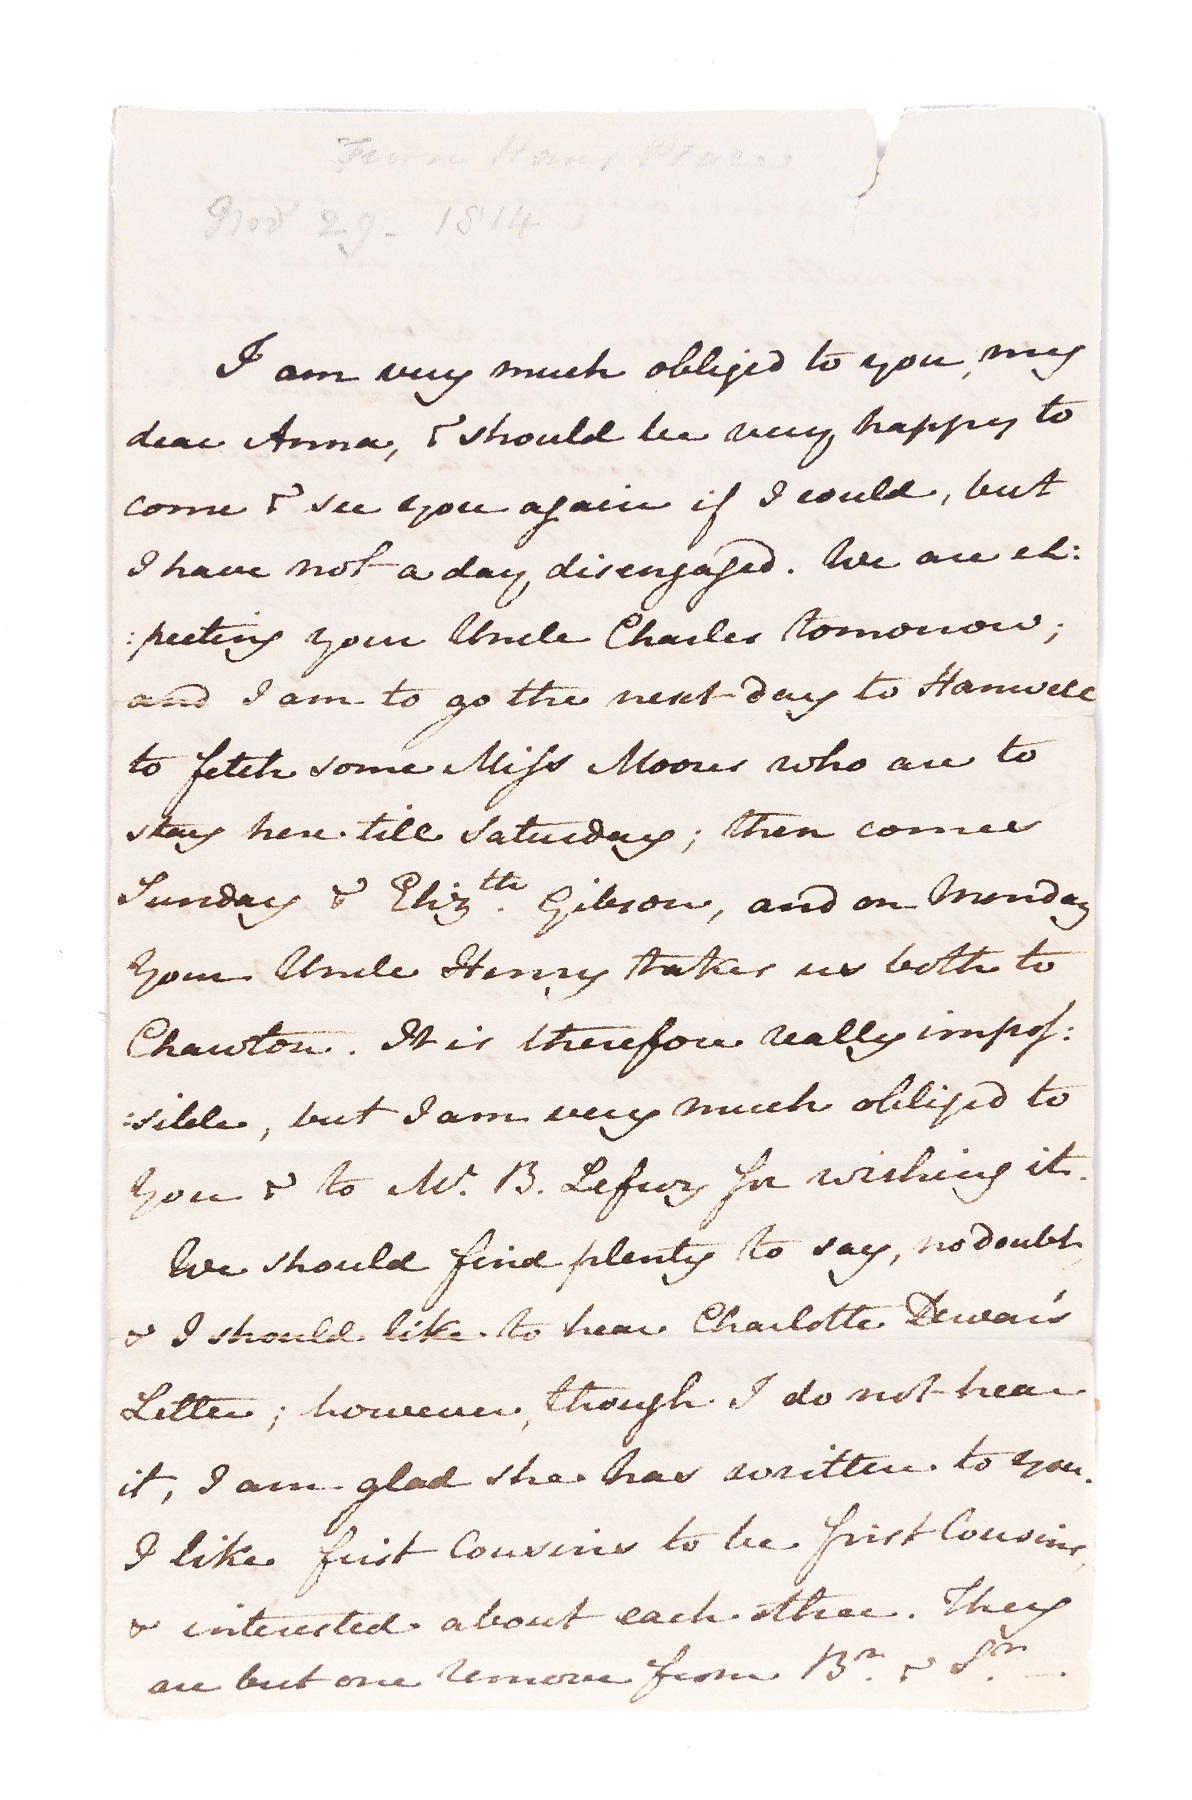 From Hans Place
Nov 29 - 1814
I am very much obliged to you, my
dear Anna, & should be very happy to
come & see you again if I could, but
I have not a day disengaged. We are ex:
:pecting your Uncle Charles tomorrow;
and I am to go the next day to Hanwell
to fetch some Miss Moores who are to
stay here till Saturday; then comes
Sunday & Eliz.th Gibson, and on Monday
Your Uncle Henry takes us both to
Chawton. It is therefore really impos:
:sible, but I am very much obliged to
You & to Mr. B. Lefroy for wishing it.
We should find plenty to say, no doubt,
& I should like to hear Charlotte Dewar's
Letter; however, though I do not hear
it, I am glad she has written to you.
I like first Cousins to be first Cousins,
& interested about each other. They
are but one remove from Br. & Sr. —.